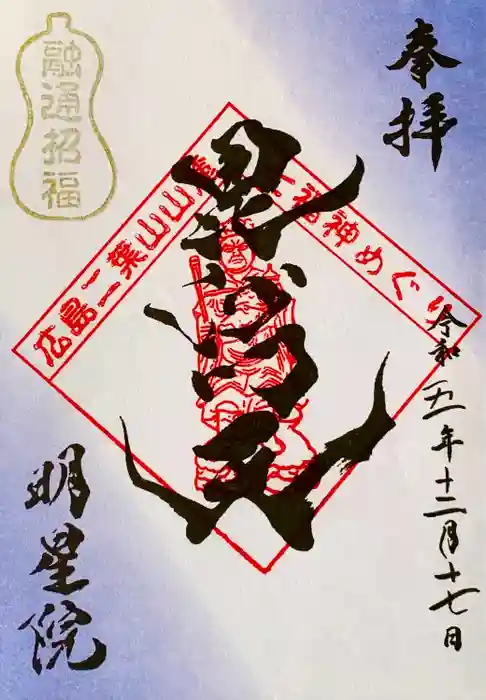 奉拝
令和五年十二月十七日
毘沙門天
広島二葉山山麓七福神めぐり
融通招福
明星院